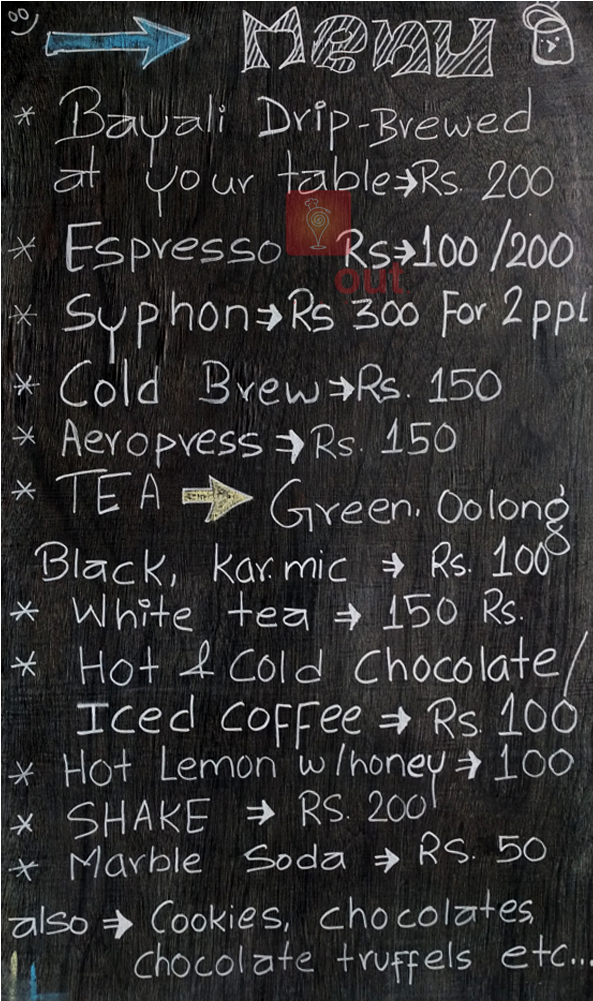 Menu
* Bayali Drip-Brewed
at your table→Rs. 200
* Espresso Rs→100/200
out
* Syphon→Rs 300 For 2 ppl
* Cold Brew→Rs. 150
* Aeropress→Rs. 150
* TEA → Green. Oolong
Black, Kar.mic → Rs. 100
* White tea → 150 Rs.
* Hot & Cold Chocolate/
Iced Coffee → Rs. 100
* Hot Lemon w/honey → 100
* SHAKE → RS. 200
* Marble Soda → RS. 50
also → Cookies, chocolates,
chocolate truffels etc...